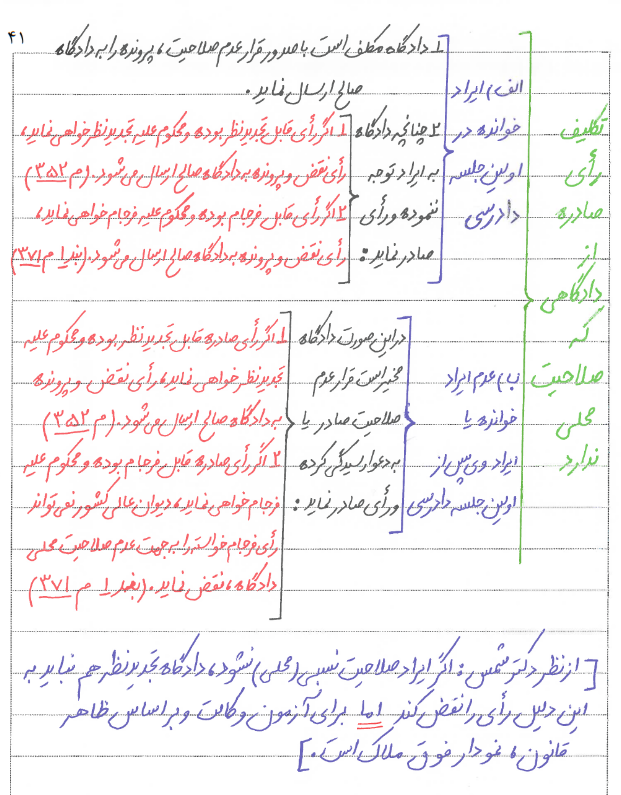 ۴۱
تکلیف رأی صادره از دادگاهی که صلاحیت محلی ندارد
الف) ایراد خوانده در اولین جلسه دادرسی
۱ـ دادگاه مکلف است با صدور قرار عدم صلاحیت، پرونده را به دادگاه
صالح ارسال نماید.
۲ـ چنانچه دادگاه
به ایراد توجه
ننموده و رأی
صادر نماید:
۱ـ اگر رأی قابل تجدیدنظر بوده و محکوم علیه تجدیدنظر خواهی نماید،
رأی نقض و پرونده به دادگاه صالح ارسال می‌شود. (م ۳۵۲)
۲ـ اگر رأی قابل فرجام بوده و محکوم علیه فرجام خواهی نماید،
رأی نقض و پرونده به دادگاه صالح ارسال می‌شود. (بند ۱ م ۳۷۱)
ب) عدم ایراد
خوانده یا
ایراد وی پس از
اولین جلسه دادرسی
در این صورت دادگاه
مخیر است قرار عدم
صلاحیت صادر یا
به دعوا رسیدگی کرده
و رأی صادر نماید:
۱ـ اگر رأی صادره قابل تجدیدنظر بوده و محکوم علیه
تجدیدنظر خواهی نماید، رأی نقض و پرونده
به دادگاه صالح ارسال می‌شود. (م ۳۵۲)
۲ـ اگر رأی صادره قابل فرجام بوده و محکوم علیه
فرجام خواهی نماید، دیوان عالی کشور نمی‌تواند
رأی فرجام خواسته را به جهت عدم صلاحیت محلی
دادگاه، نقض نماید. (بند ۱ م ۳۷۱)
[از نظر دکتر شمس: اگر ایراد صلاحیت نسبی (محلی) نشود، دادگاه تجدیدنظر هم نباید به
این دلیل رأی را نقض کند. اما برای آزمون وکالت و بر اساس ظاهر
قانون، نمودار فوق ملاک است.]